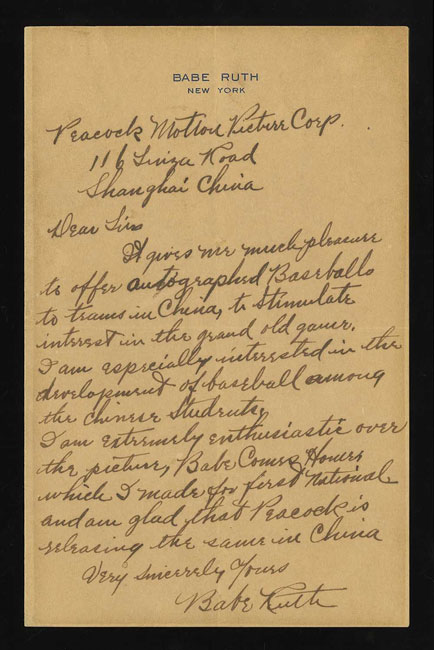 BABE RUTH
NEW YORK
Peacock Motion Picture Corp.
116 Sinza Road
Shanghai China
Dear Sirs
It gives me much pleasure
to offer autographed Baseballs
to teams in China, to stimulate
interest in the grand old game.
I am especially interested in the
development of baseball among
the Chinese Students,
I am extremely enthusiastic over
the picture, Babe Comes Home,
which I made for first National
and am glad that Peacock is
releasing the same in China
Very sincerely Yours
Babe Ruth